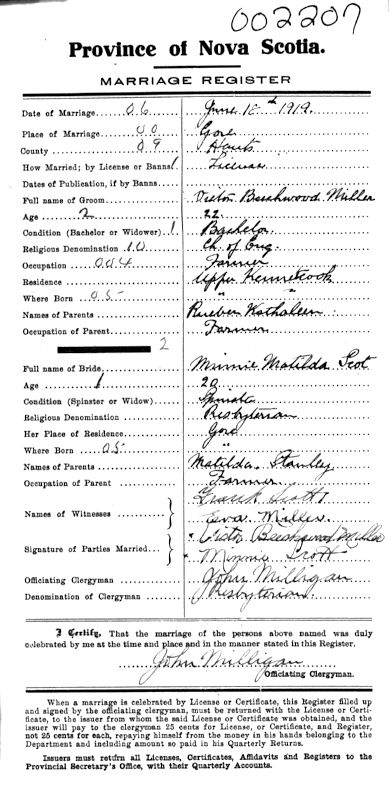 002207
Province of Nova Scotia.
MARRIAGE REGISTER
Date of Marriage 06 June 18th 1919.
Place of Marriage 00 Gore
County 09 Hants
How Married; by License or Banns 1 License
Dates of Publication, if by Banns
Full name of Groom Victor Beechwood Miller
Age 2 22
Condition (Bachelor or Widower) 1 Bachelor
Religious Denomination 10 Ch. of Eng.
Occupation 004 Farmer
Residence Upper Kennetcook
Where Born 05 " "
Names of Parents Reuben Kathaleen
Occupation of Parent Farmer
2
Full name of Bride Minnie Matilda Scot
Age 1 20
Condition (Spinster or Widow) Spinster
Religious Denomination Presbyterian
Her Place of Residence Gore
Where Born 05 "
Names of Parents Matilda. Stanley
Occupation of Parent Farmer
Names of Witnesses Frank Scott
Eva Miller
Signature of Parties Married Victor Beechwood Miller
Minnie Scott
Officiating Clergyman John Milligan
Denomination of Clergyman Presbyterian
I Certify, That the marriage of the persons above named was duly
celebrated by me at the time and place and in the manner stated in this Register.
John Milligan
Officiating Clergyman.
When a marriage is celebrated by License or Certificate, this Register filled up
and signed by the officiating clergyman, must be returned with the License or Certi-
ficate, to the issuer from whom the said License or Certificate was obtained, and the
issuer will pay to the clergyman 25 cents for License, or Certificate, and Register,
not 25 cents for each, repaying himself from the money in his hands belonging to the
Department and including amount so paid in his Quarterly Returns.
Issuers must return all Licenses, Certificates, Affidavits and Registers to the
Provincial Secretary's Office, with their Quarterly Accounts.